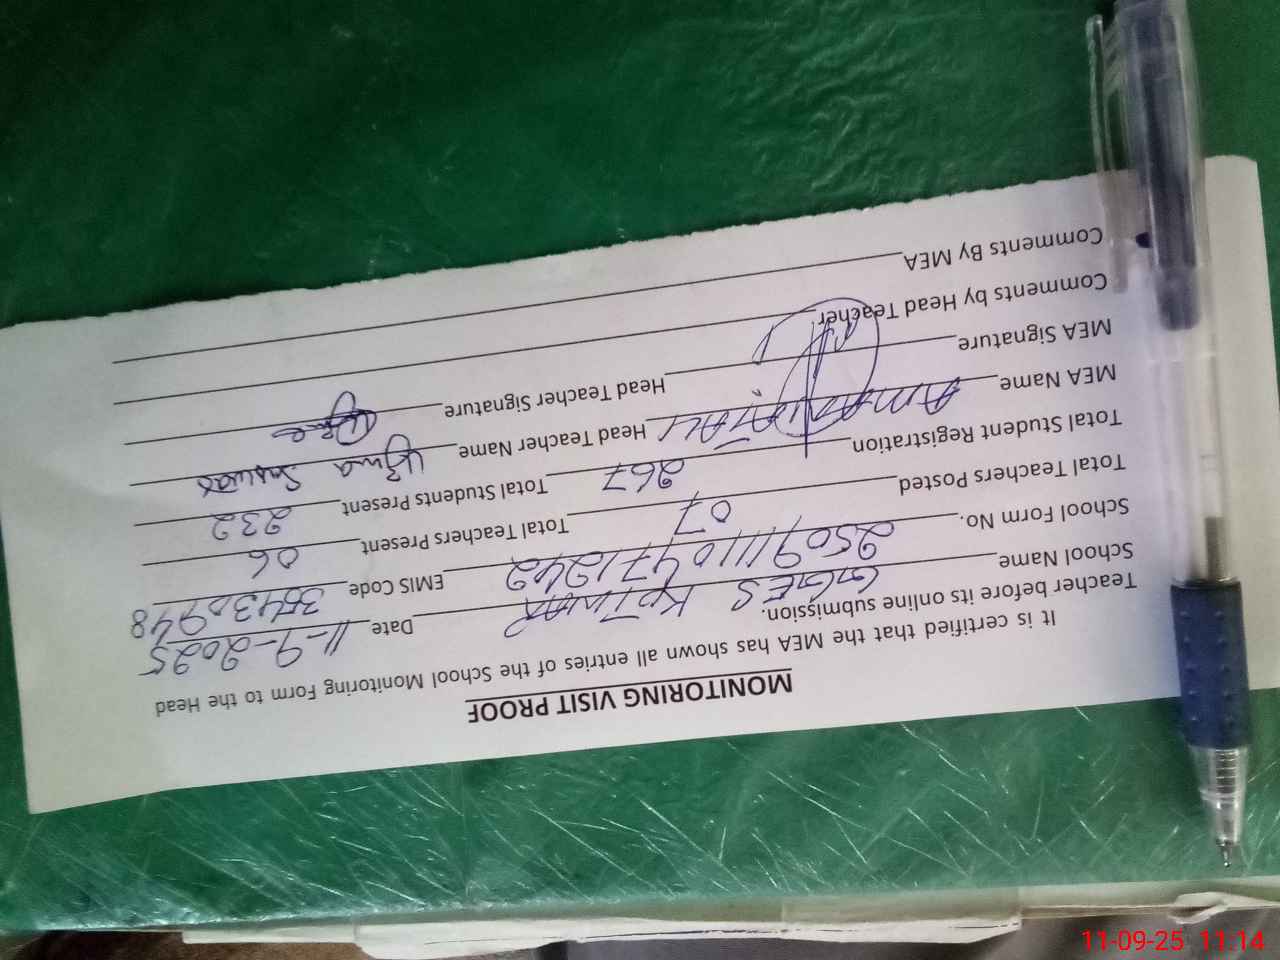 MONITORING VISIT PROOF
It is certified that the MEA has shown all entries of the School Monitoring Form to the Head
Teacher before its online submission.
School Name GGES Date 11-9-2025
School Form No. 250911110471242 EMIS Code 35430948
Total Teachers Posted 07 Total Teachers Present 06
Total Student Registration 267 Total Students Present 232
MEA Name Head Teacher Name Uzma
MEA Signature Head Teacher Signature
Comments by Head Teacher
Comments By MEA
11-09-25 11:14